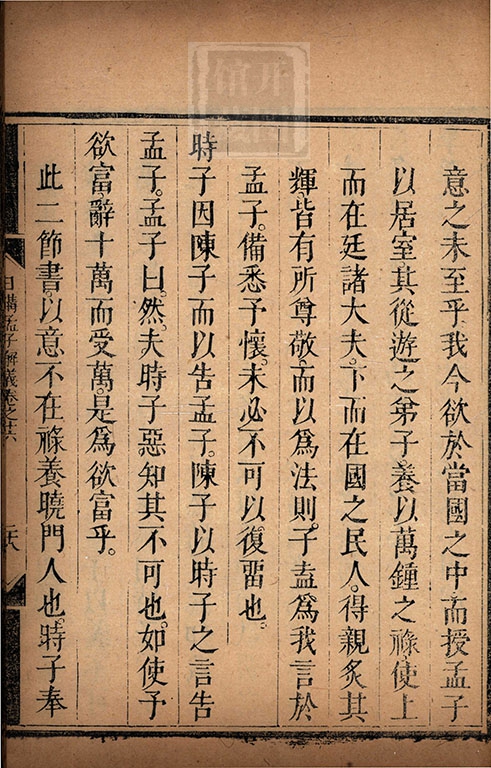 意之未至乎我今欲於當國之中而授孟子
以居室其從遊之弟子養以萬鍾之祿使上
而在廷諸大夫下而在國之民人得親炙其
輝皆有所尊敬而以為法則子盍為我言於
孟子備悉予懷未必不可以復畱也
時子因陳子而以告孟子陳子以時子之言告
孟子孟子曰然夫時子惡知其不可也如使予
欲富辭十萬而受萬是為欲富乎
此二節書以意不在祿養曉門人也時子奉
日講孟子解義卷之十六
二十八